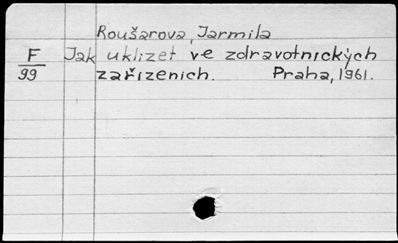 Roušarova, Jarmila
F Jak uklizet ve zdravotnických
99 zařízeních. Praha, 1961.